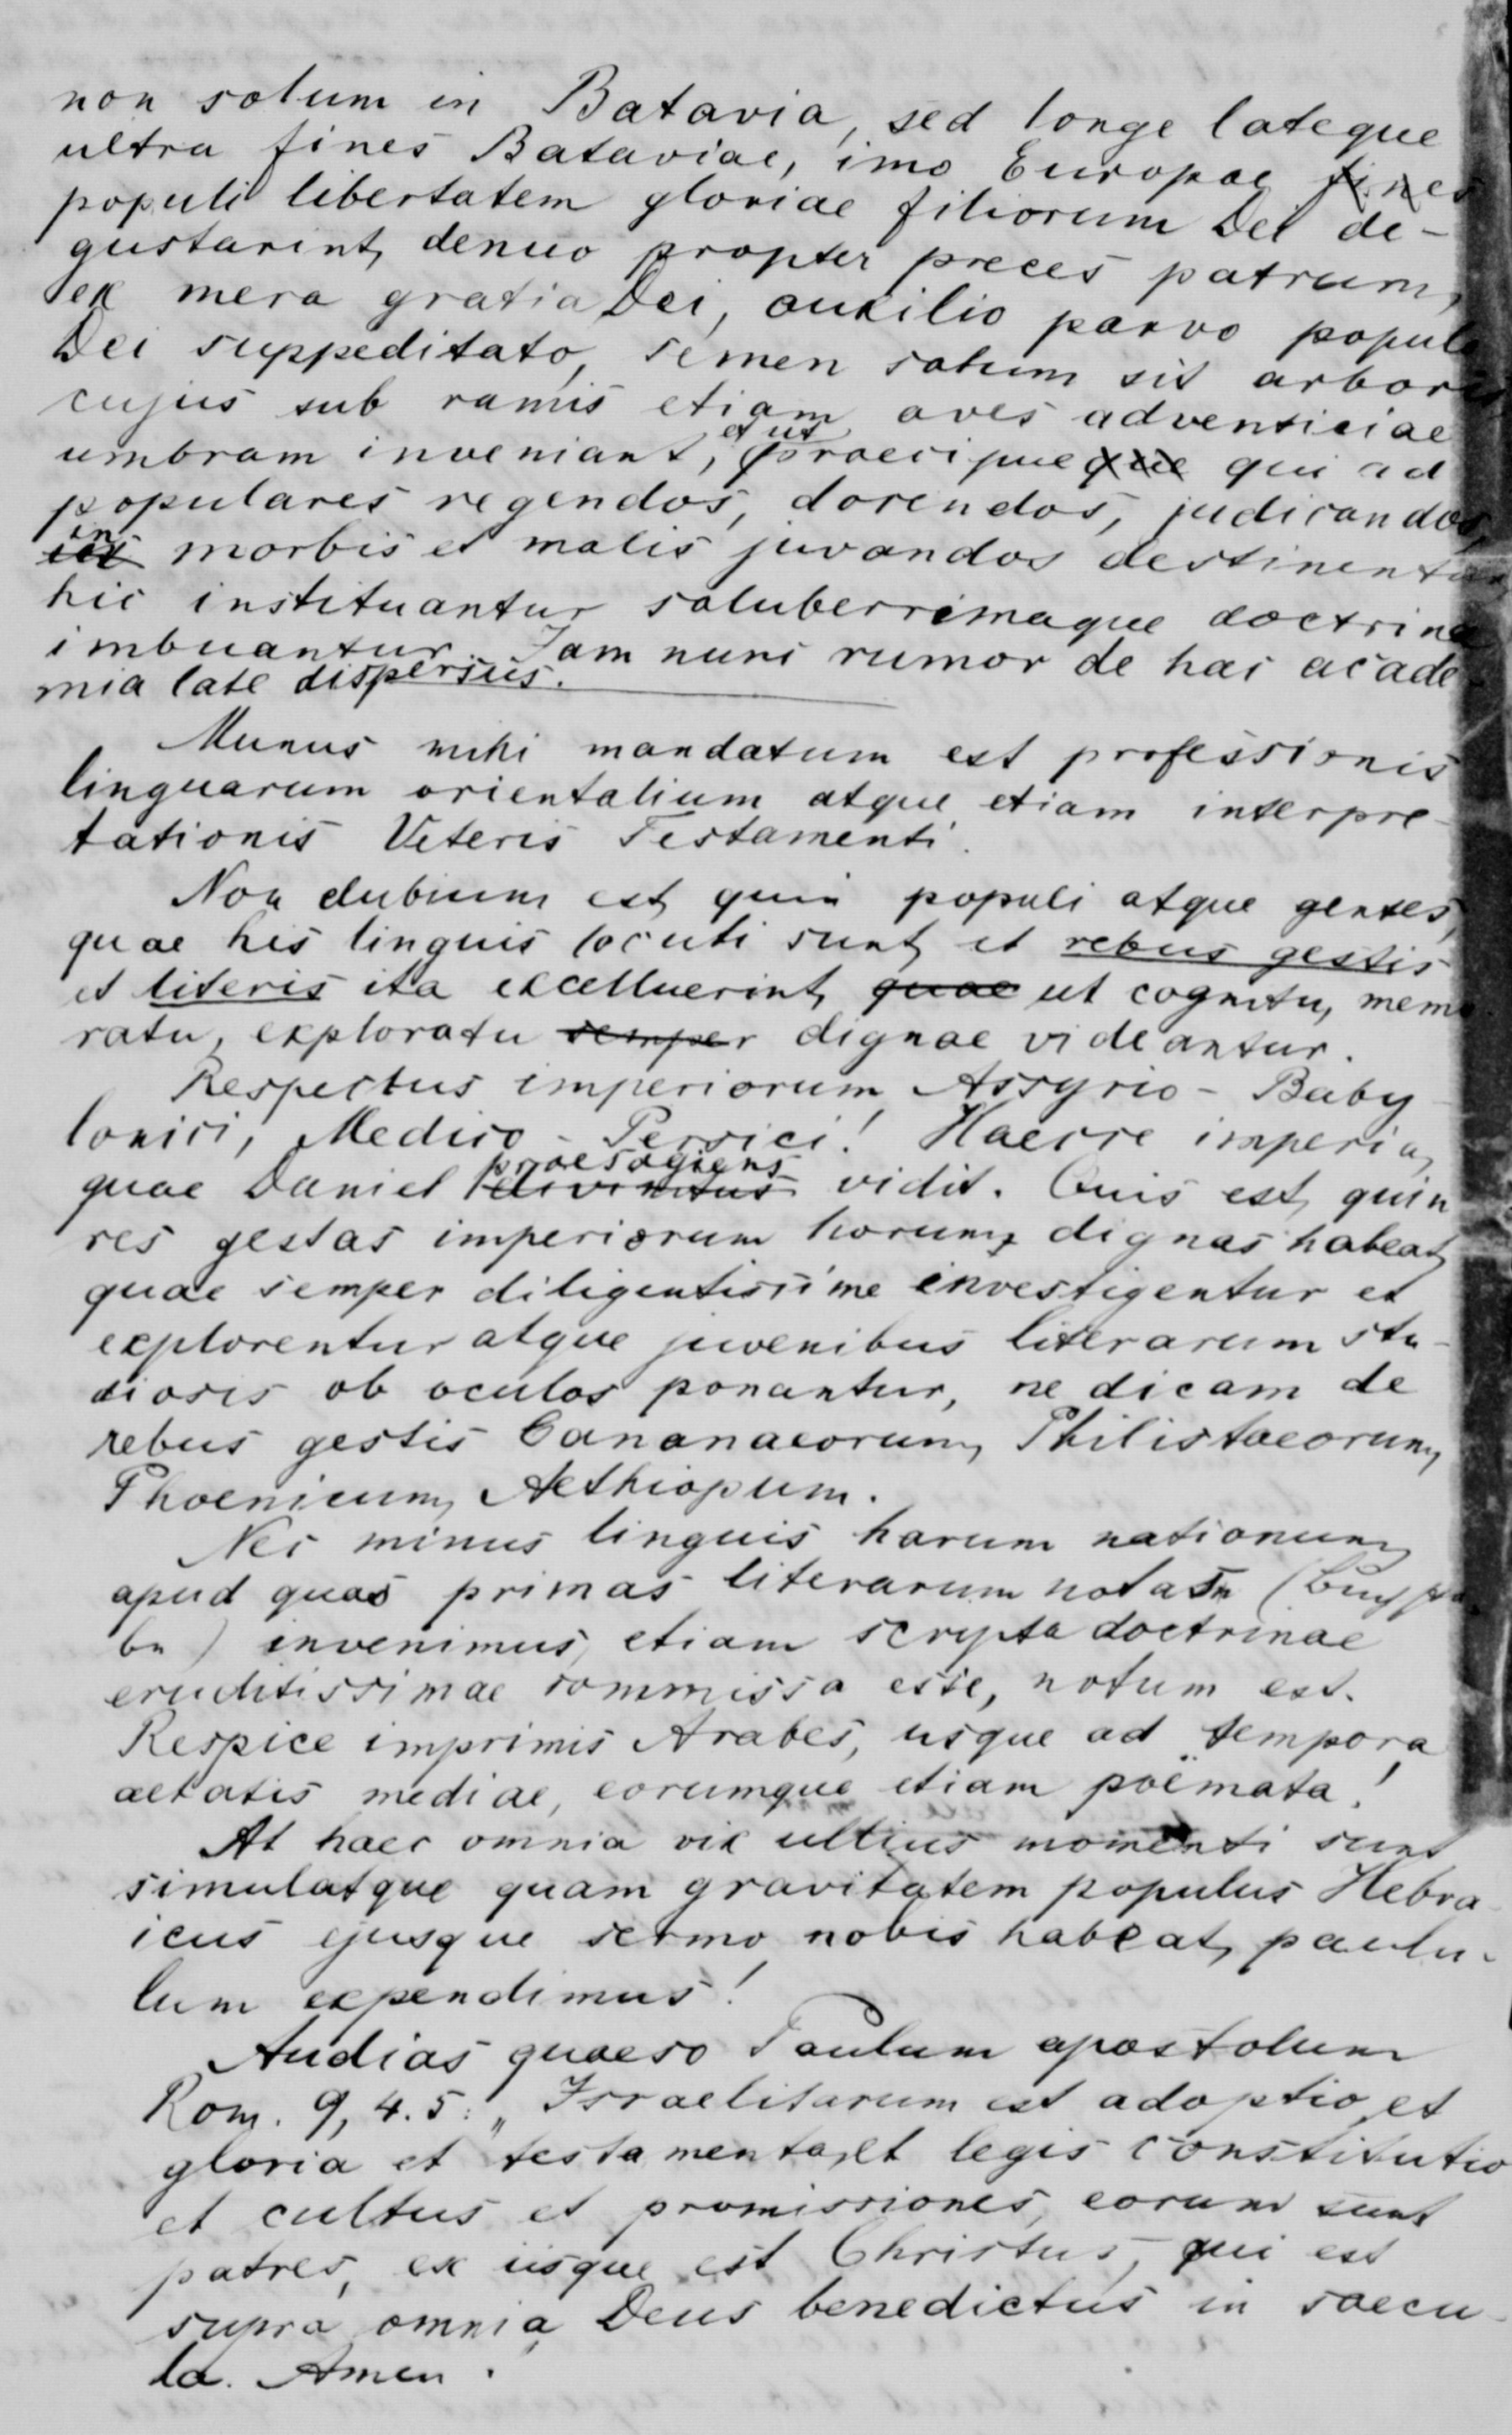 non solum in Batavia, sed longe lateque
ultra fines Bataviae, imo Europae fines
populi libertatem gloriae filiorum Dei de-
gustarint, denuo propter preces patrum,
ex mera gratia Dei, auxilio parvo populo
Dei suppeditato, semen satum sit arboris
cujus sub ramis etiam aves adventiciae
umbram inveniant, et ut praecipue que qui ad
populares regendos, docendos, judicandos,
in morbis et malis juvandos destinentur
hic instituantur saluberrimaque doctrina
imbuantur. Jam nunc rumor de hac acade-
mia late dispersus.
Munus mihi mandatum est professionis
linguarum orientalium atque etiam interpre-
tationis Veteris Testamenti.
Non dubium est, quin populi atque gentes,
quae his linguis locuti sunt, et rebus gestis
et literis ita excelluerint, quae ut cognitu, memo
ratu, exploratu semper dignae videantur.
Respectus imperiorum Assyrio - Baby-
lonici, Medico - Persici! Haecce imperia,
quae Daniel praesagiens divinitus vidit. Quis est, quin
res gestas imperiorum horum, dignas habeat,
quae semper diligentissime investigentur et
explorentur atque juvenibus literarum stu-
diosis ob oculos ponantur, ne dicam de
rebus gestis Cananaeorum, Philistaeorum,
Phoenicum, Aethiopum.
Nec minus linguis harum nationum,
apud quas primas literarum notas
invenimus, etiam scripta doctrinae
eruditissimae commissa esse, notum est.
Respice imprimis Arabes, usque ad tempora
aetatis mediae, eorumque etiam poëmata!
At haec omnia vix ullius momenti sunt
simulatque quam gravitatem populus Hebra-
icus ejusque sermo nobis habeat, paulu-
lum expendimus!
Audias quaeso Paulum apostolum
Rom. 9, 4. 5: „Israelitarum est adoptio et
gloria et testamenta, et legis constitutio
et cultus et promissiones, eorum sunt
patres, ex iisque est Christus, qui est
supra omnia Deus benedictus in saecu-
la. Amen.